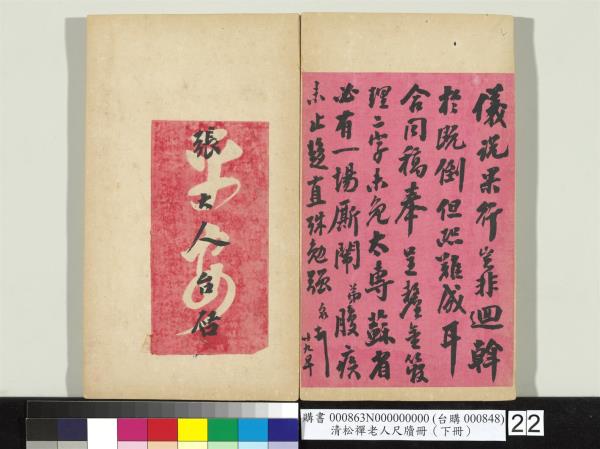 儀説果行豈非迴斡
於既倒但恐難成耳
合同稿奉呈釐定管
理二字未免太專蘇省
必有一場厮鬧弟腹疾
未止竪直殊勉强
廿九早
平安
張大人台啓
購書 000863N000000000 (台購 000848)
清松禪老人尺牘冊（下冊）
22